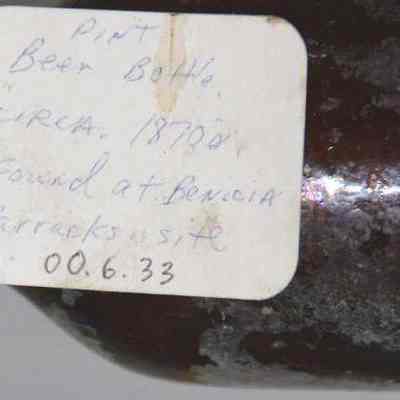 PINT
Beer Bottle
CIRCA. 1870s
Found at BENICIA
Barracks site
00.6.33